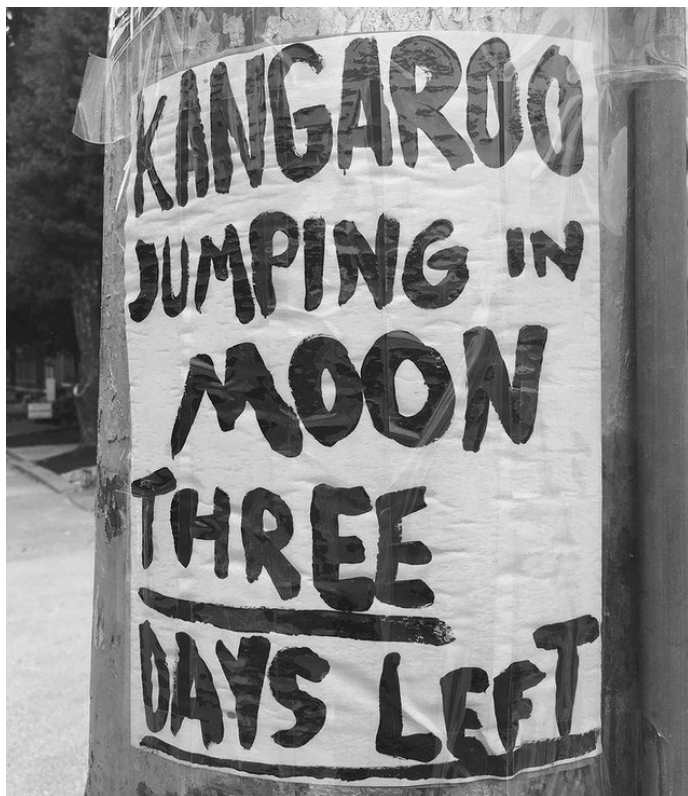 KANGAROO
JUMPING IN
MOON
THREE
DAYS LEFT